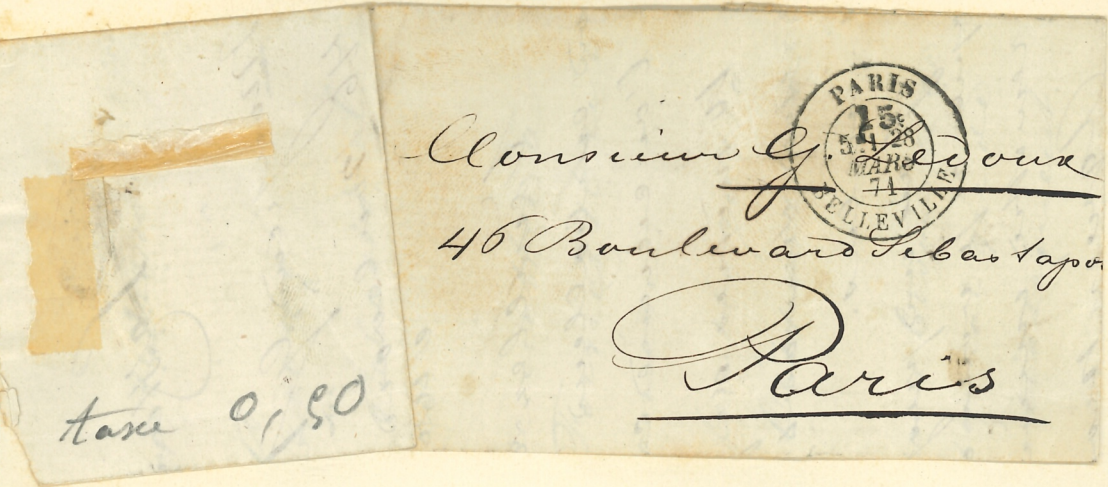 taxe 0,50
PARIS
15c
5E/ 28
MARS
71
BELLEVILLE
Monsieur G. Ledoux
46 Boulevard Sebastapo
Paris